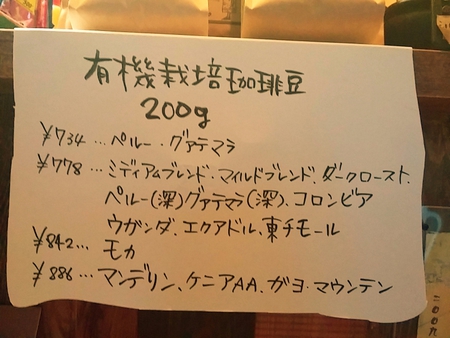 有機栽培珈琲豆
200g
¥734…ペルー・グァテマラ
¥778…ミディアムブレンド・マイルドブレンド、ダークロースト、
ペルー(深)グァテマラ(深)、コロンビア
ウガンダ、エクアドル、東チモール
¥842…モカ
¥886…マンデリン、ケニアAA、ガヨ・マウンテン
二〇〇九